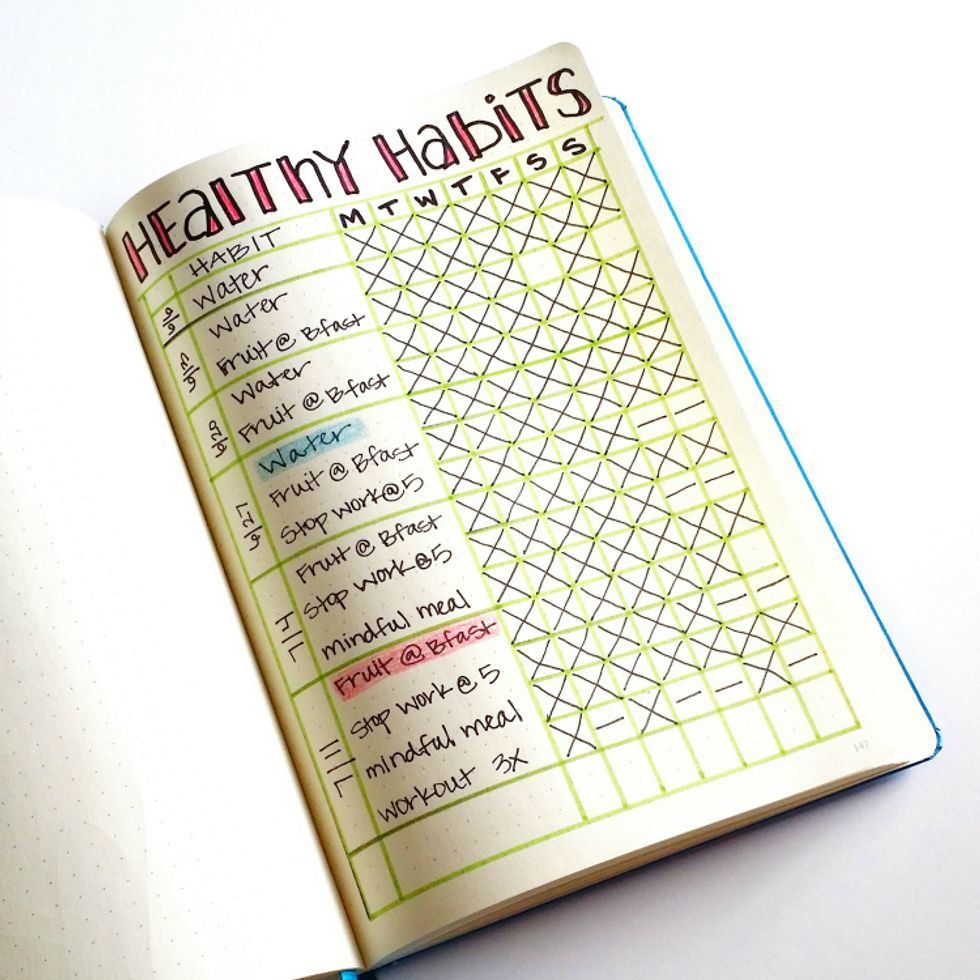 HEAlThY HabiTS
HABIT M T W T F S S
6/6 Water
6/13 Water
Fruit @ Bfast
6/20 Water
Fruit @ Bfast
6/27 Water
Fruit @ Bfast
Stop work@5
7/4 Fruit @ Bfast
Stop work@5
mindful meal
7/11 Fruit @ Bfast
Stop work @ 5
mindful meal
workout 3x
147